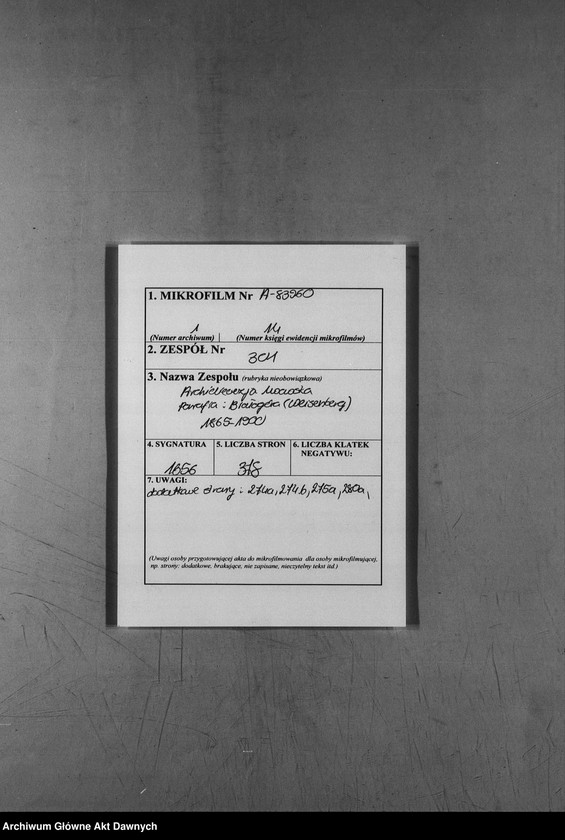 1. MIKROFILM Nr A-83960
1 14
(Numer archiwum) (Numer księgi ewidencji mikrofilmów)
2. ZESPÓŁ Nr 301
3. Nazwa Zespołu (rubryka nieobowiązkowa)
Archidiecezja Lwowska
Parafia: Białogóra (Weisenberg)
1865-1900
4. SYGNATURA 5. LICZBA STRON 6. LICZBA KLATEK
NEGATYWU:
1656 378
7. UWAGI:
dodatkowe strony: 274a, 274b, 275a, 280a,
(Uwagi osoby przygotowującej akta do mikrofilmowania dla osoby mikrofilmującej,
np. strony: dodatkowe, brakujące, nie zapisane, nieczytelny tekst itd.)
Archiwum Główne Akt Dawnych